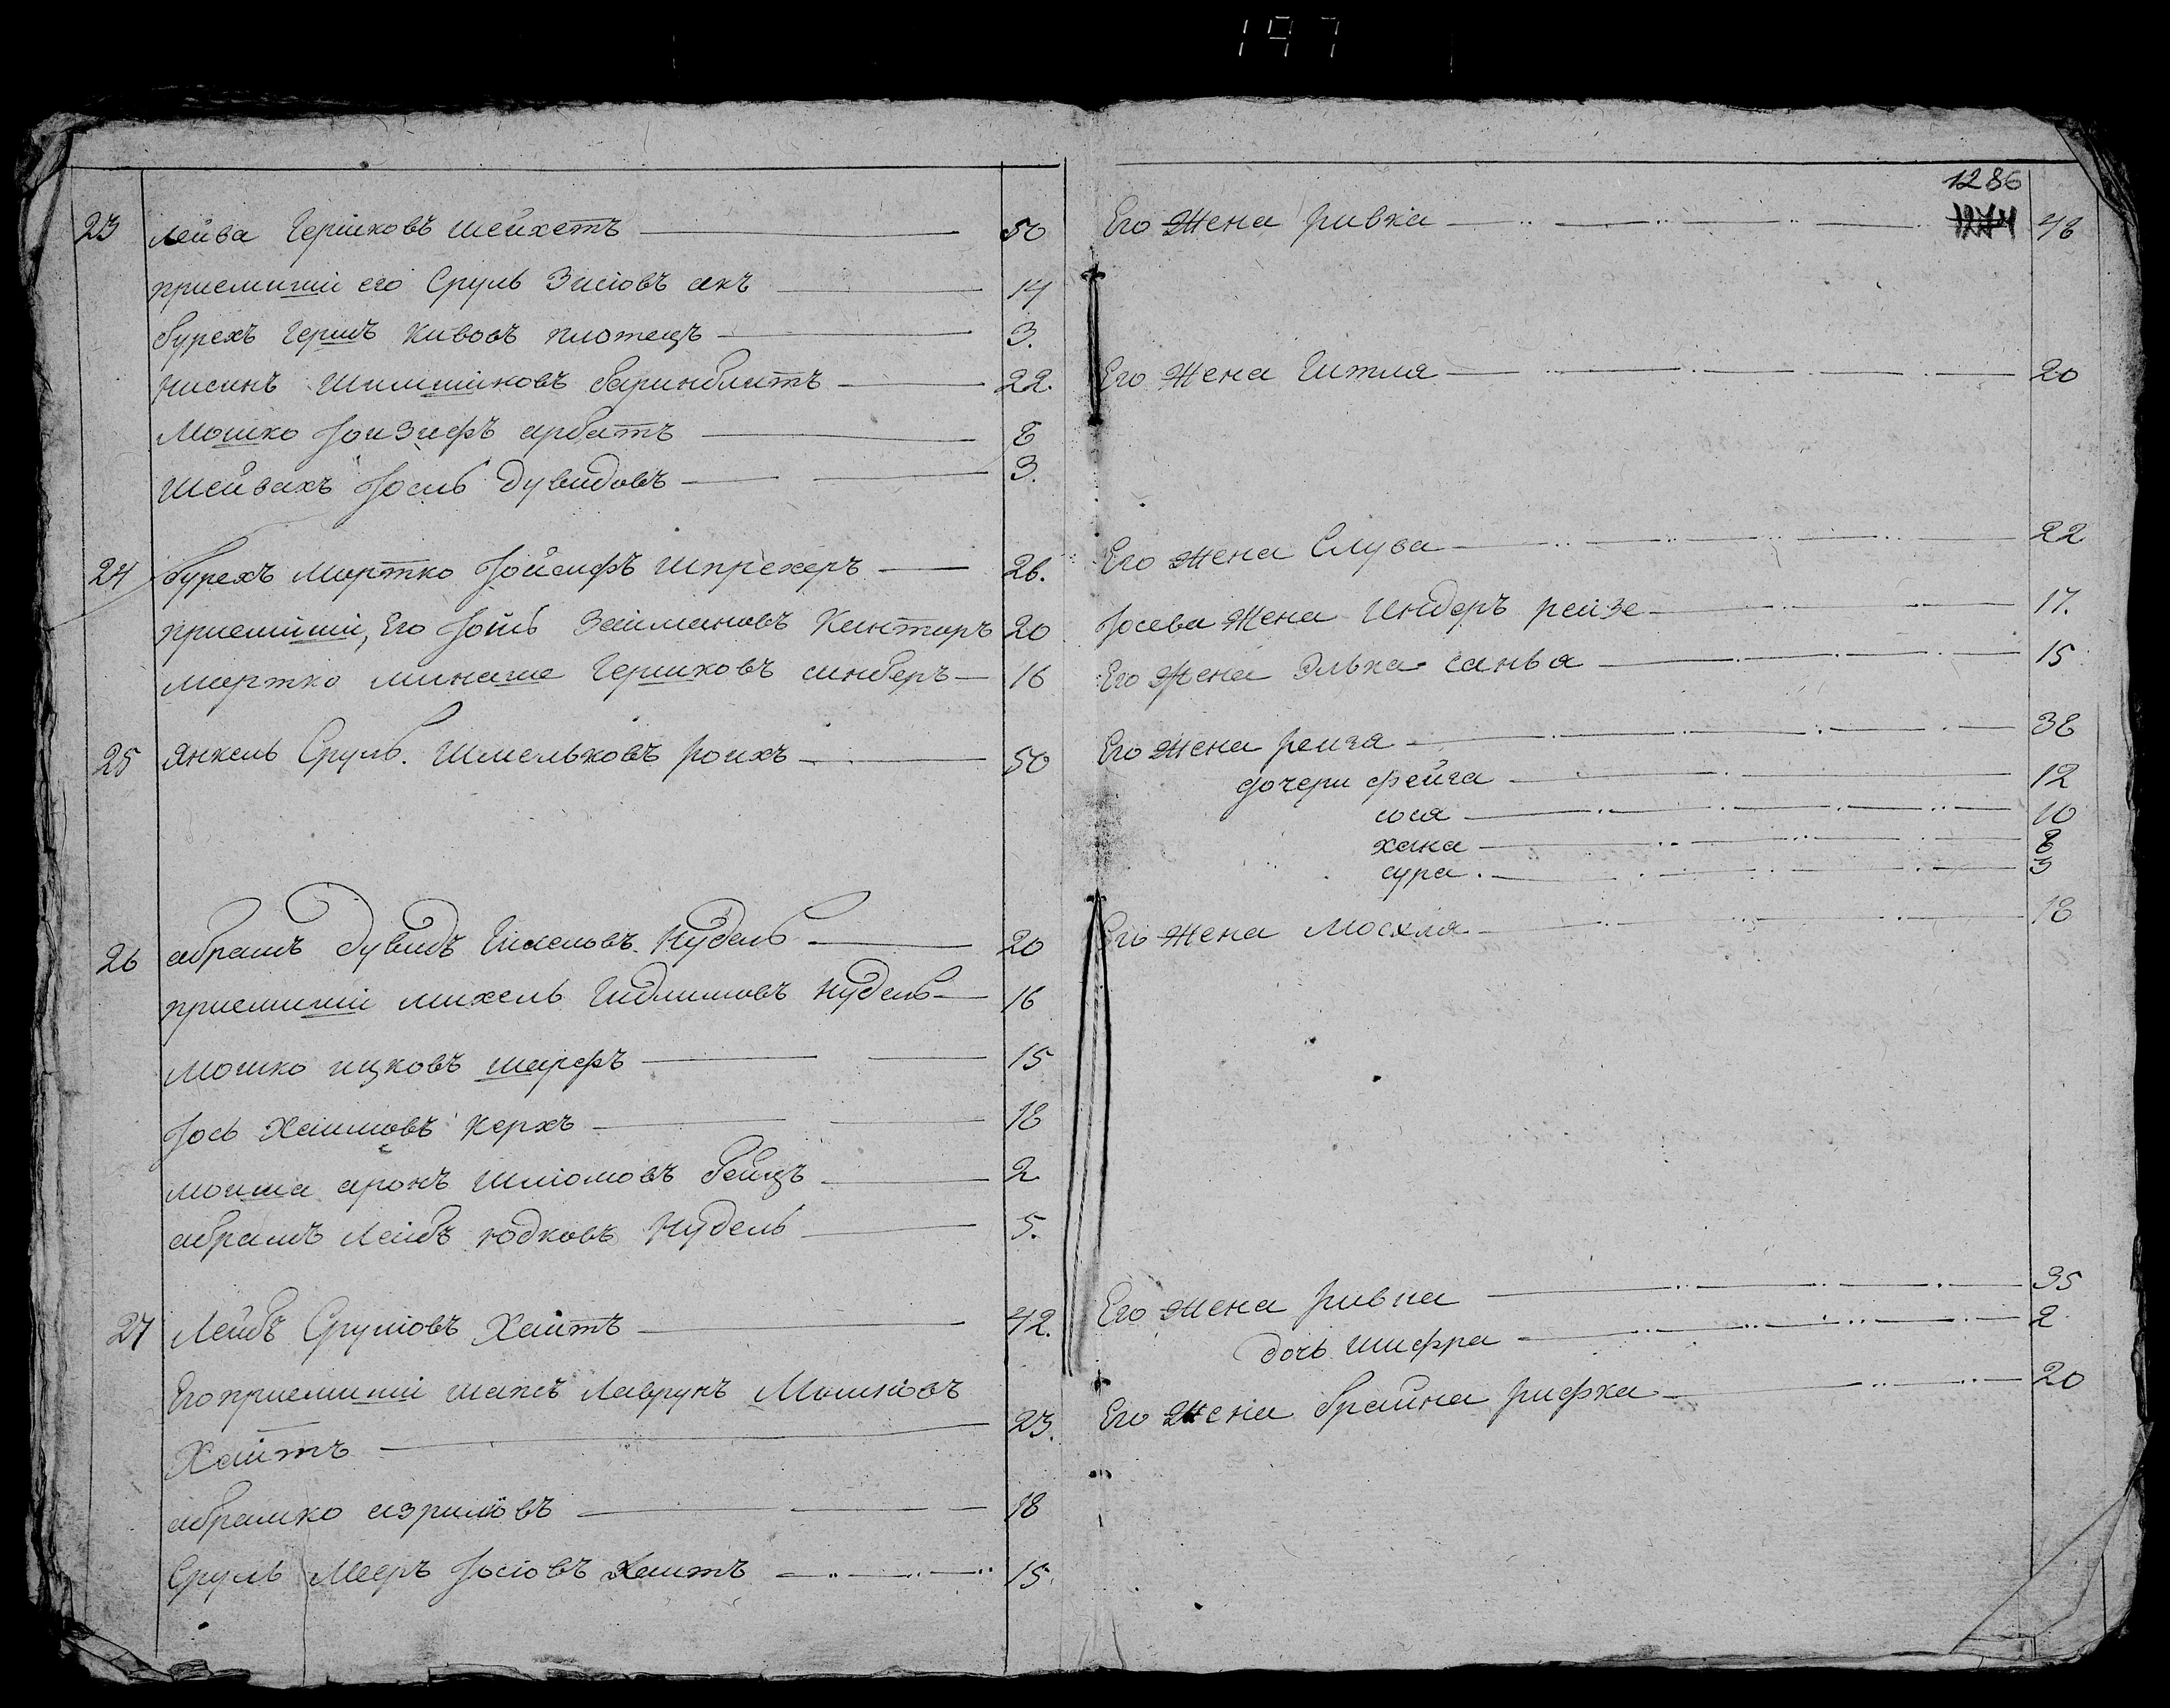 197
1286
23 лейва Гершковъ шейхетъ 50
приемшии его Сруль Зисювъ акъ 14
бурехъ Гершъ Кивовъ плотецъ 3.
нисинъ Шимшиновъ баринблитъ 22.
Мошко Іоизифъ арбатъ 8
Шейвахъ Іосль Дувидовъ 3.
24 бурехъ Мортко Іойсифъ Шпрехеръ 26.
приемшии, Его Іойль Займановъ Кинторъ 20
Мортко минаше Гершковъ синберъ 16
25 Янкель Сруль. Шмельковъ роихъ 50
26 абрамъ Дувидъ Нудель 20
приемшии михель Нудель 16
мошко ицковъ шарфъ 15
Іось Хаимовъ Керхъ 18
моиша аронъ шлiомовъ бейцъ 2
абрамъ Лейбъ юдковъ Нудель 5.
27 Лейбъ Срулiовъ Хаитъ 42.
Его приемшии шаже Лаврунъ Мошкiовъ
Хаитъ 23.
абрамко изрилювъ 18
Сруль Мееръ Іосiовъ Хаитъ 15.
Его Жена ривка 46
Его Жена Гитля 20
Его жена Слува 22
Іосева Жена Индеръ рейзе 17.
Его Жена Элька санья 15
Его жена рейза 38
дочери фейга 12
сося 10
хана 8
сура. 3
Его Жена Мосхля 18
Его жена ривка 35
дочь шифра 2
Его Жена брайна рифка 20